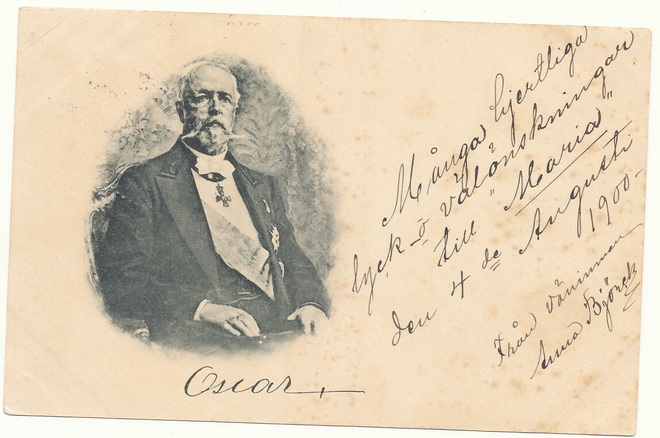 Många hjertliga
lyck- o välönskningar
till "Maria"
den 4de Augusti
1900-
Från väninnan
Anna Björck
Oscar